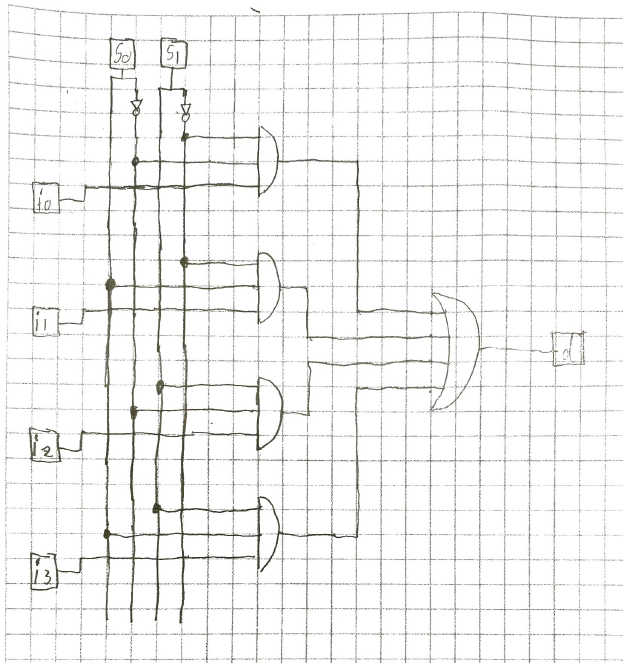 S0 S1
i0
i1
d
i2
i3